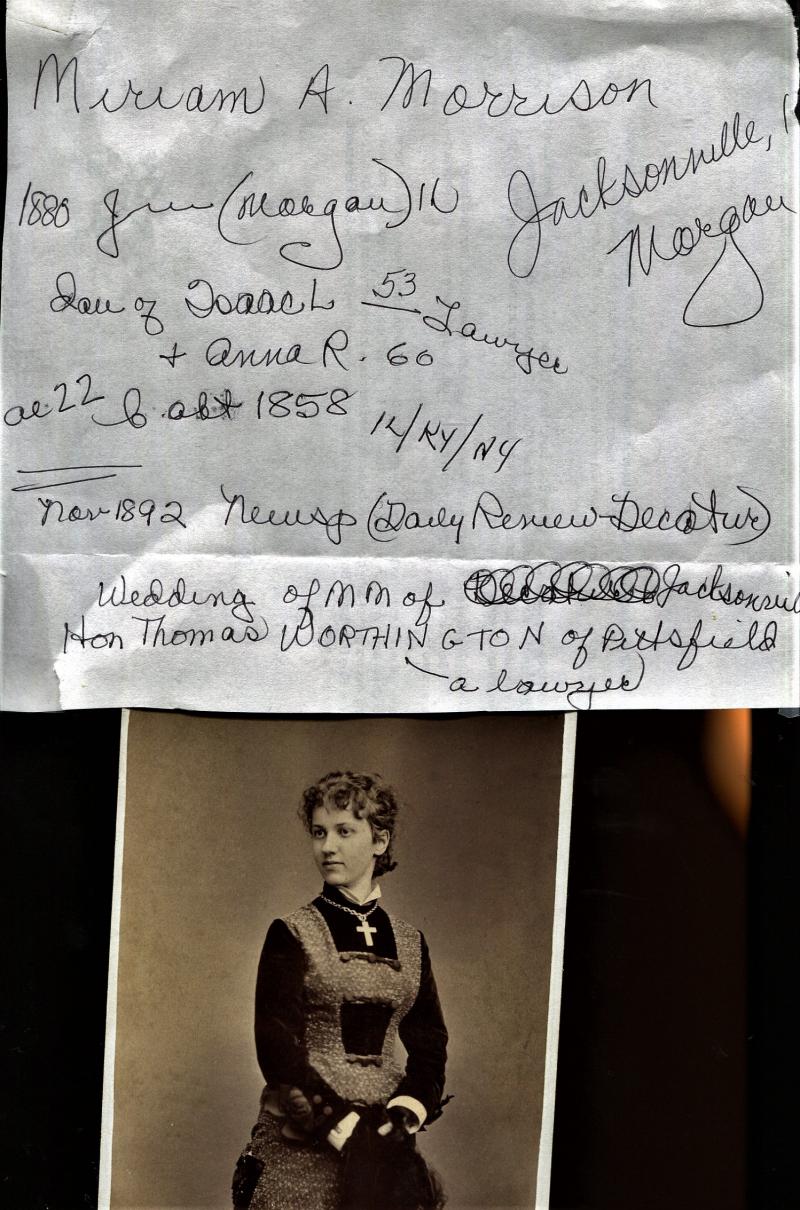 Miriam A. Morrison
Jacksonville, I
Morgan
1880 (Morgan) IL
dau of Isaac L 53 Lawyer
+ Anna R. 60
ae 22 b. abt 1858 IL/KY/NY
Nov 1892 Newsp (Daily Review-Decatur)
Wedding of MM of Jacksonvil
Hon Thomas WORTHINGTON of Pittsfield
a lawyer